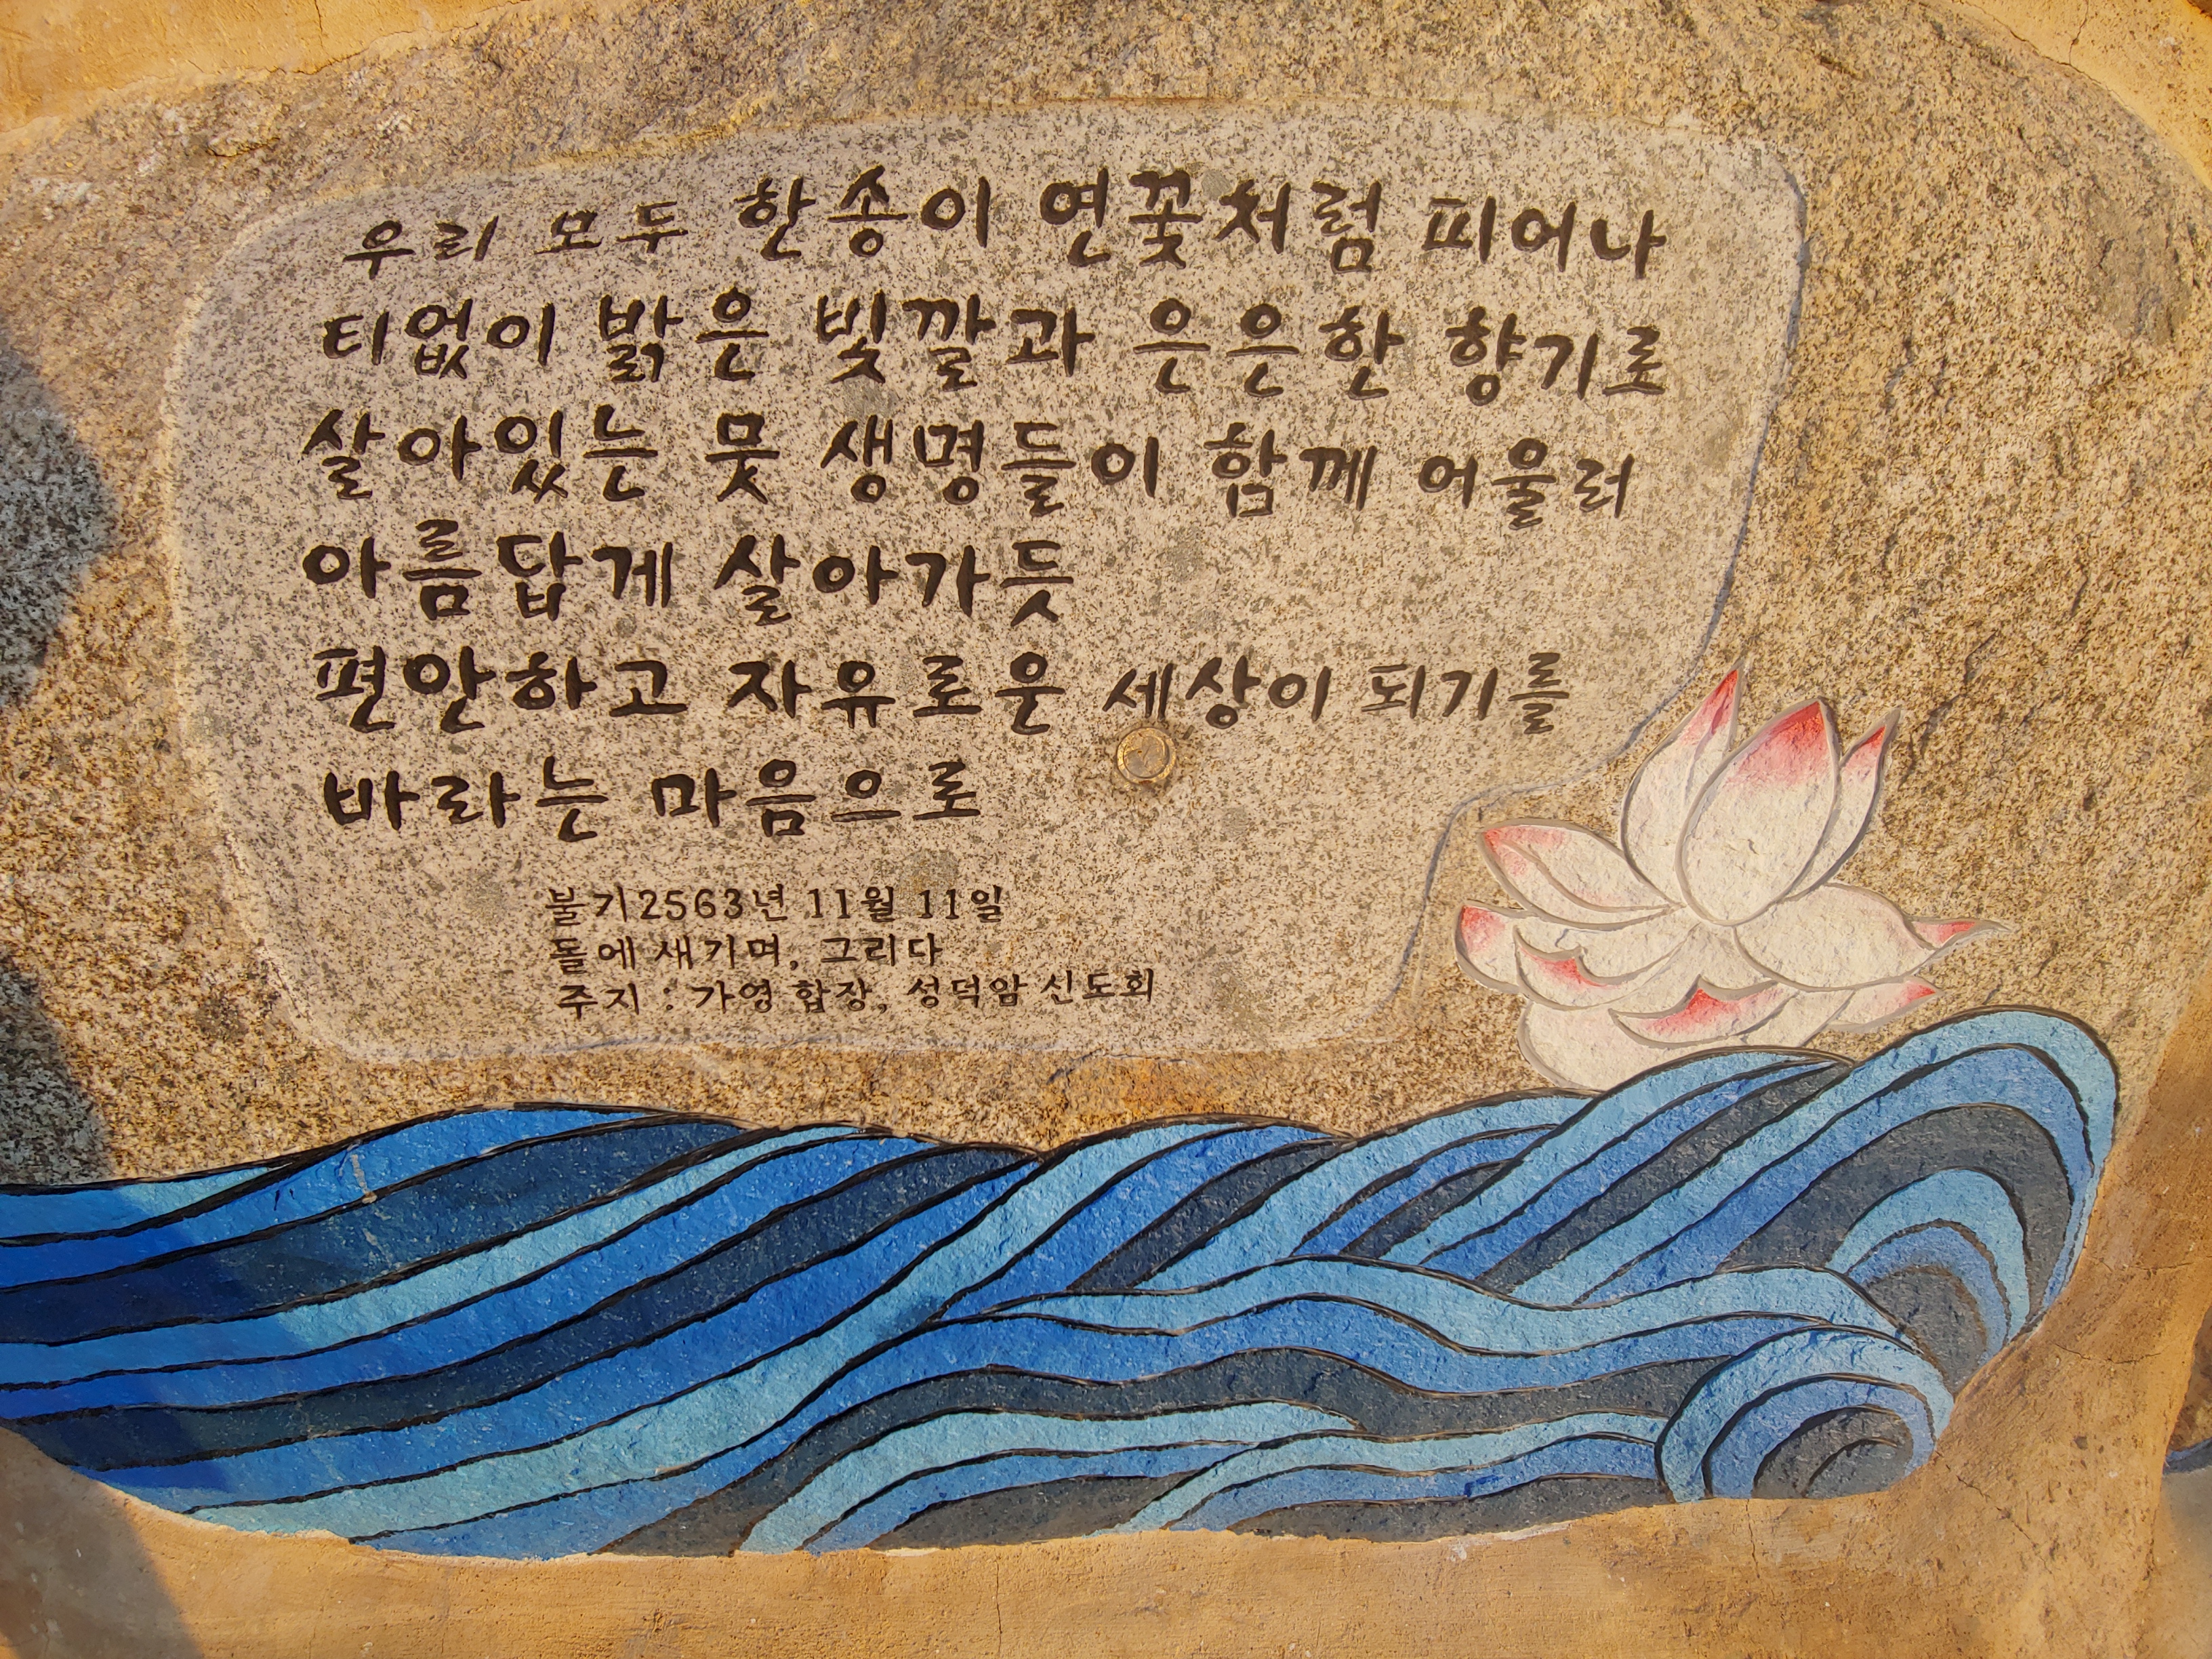 우리 모두 한송이 연꽃처럼 피어나
티없이 밝은 빛깔과 은은한 향기로
살아있는 뭇 생명들이 함께 어울려
아름답게 살아가듯
편안하고 자유로운 세상이 되기를
바라는 마음으로
불기2563년 11월 11일
돌에 새기며, 그리다
주지 : 가영 합장, 성덕암 신도회